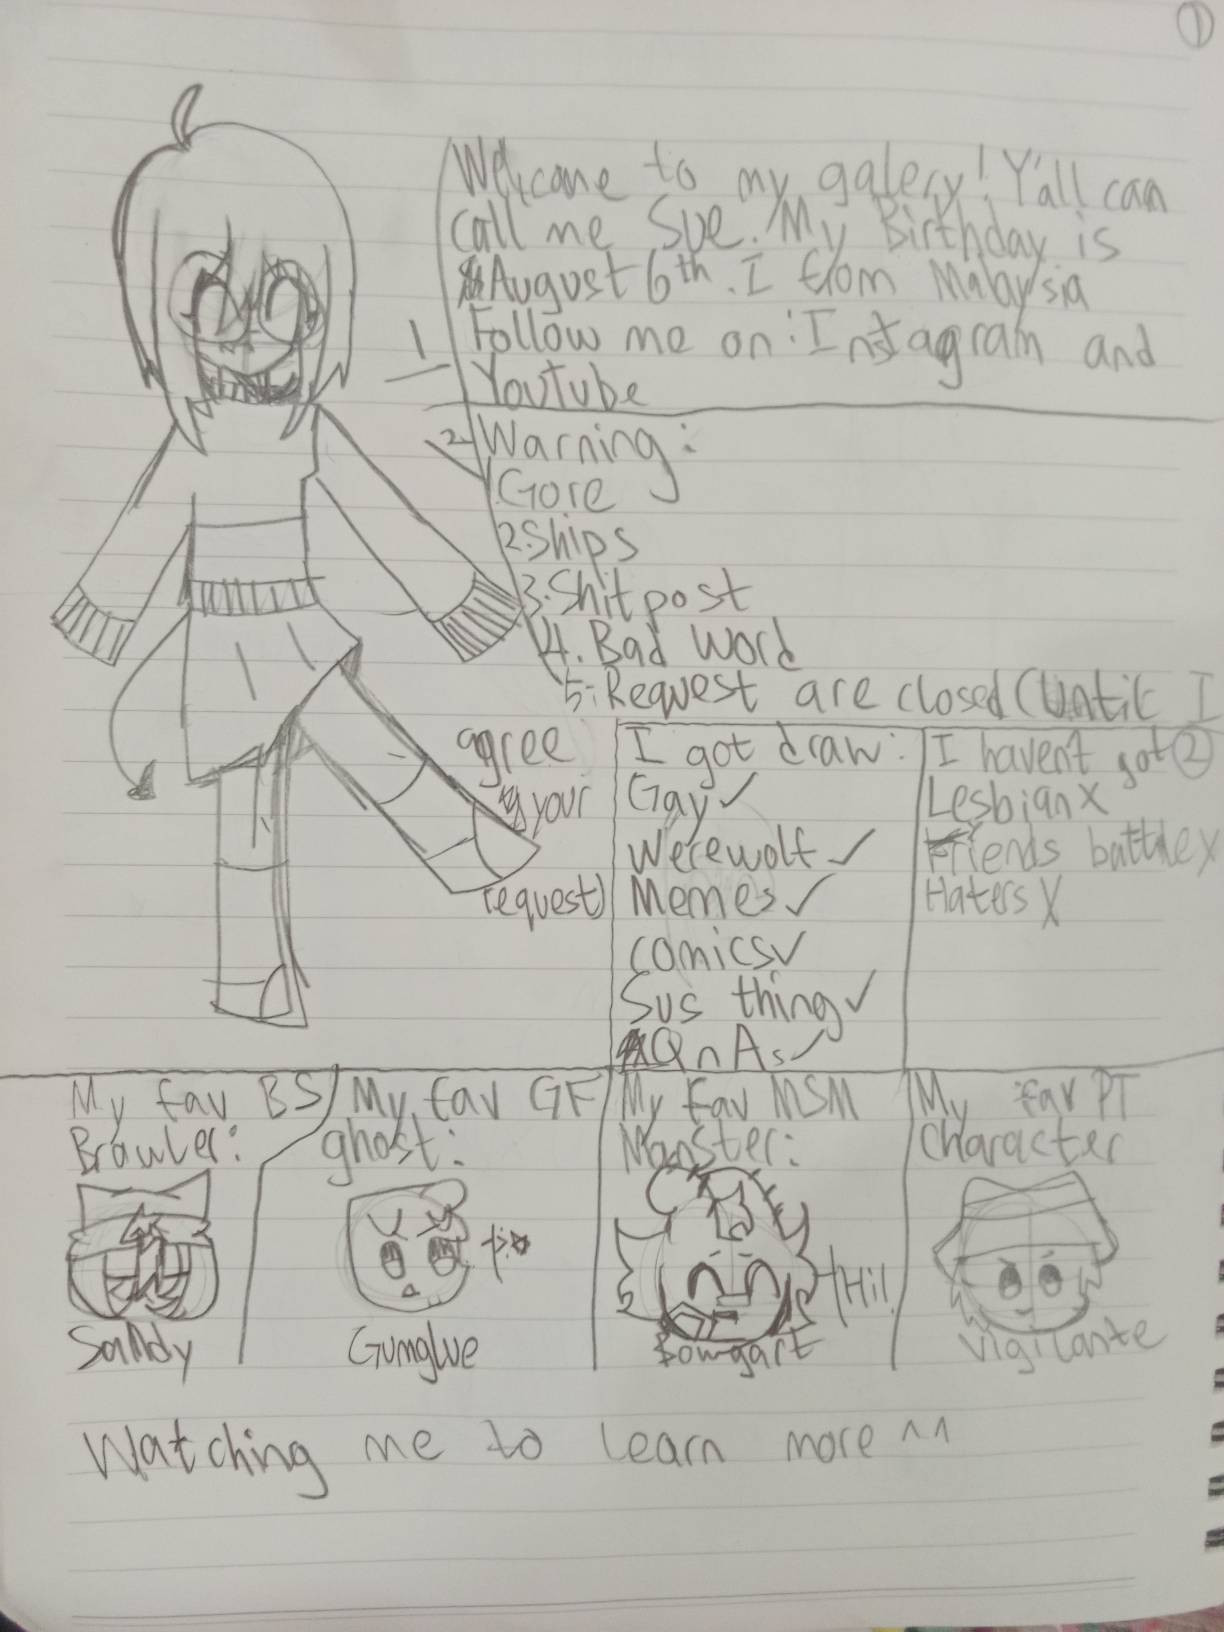 1
Welcome to my galery! Y'all can
call me Sue. My Birthday is
August 6th. I from Malaysia
Follow me on: Instagram and
Youtube
1
2. Warning:
1. Gore
2. Ships
3. Shitpost
4. Bad Word
5. Request are closed (Until I
agree
your
request)
I got draw:
Gay ✓
Werewolf ✓
Memes ✓
comics ✓
Sus thing ✓
QnAs ✓
I havent got 2
Lesbian X
Friends battle X
Haters X
My fav BS
Brawler:
Sandy
My fav GF
ghost:
Gumglue
My Fav MSM
Monster:
Hi!
Bowgart
My fav PT
Character
Vigilante
Watching me to learn more ^^